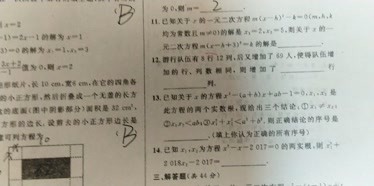 为0,则m= 2 .
11.已知关于x的一元二次方程m(x-h)²-k=0(m,h,k
均为常数且m≠0)的解是x₁=2,x₂=5,则关于x的一
元二次方程m(x-h+3)²=k的解是
12.游行队伍有8行12列,后又增加了69人,使得队伍增
加的行、列数相同,则增加了 行
列.
13.已知关于x的方程x²-(a+b)x+ab-1=0,x₁,x₂是
此方程的两个实数根,现给出三个结论:①x₁≠x₂;
②x₁x₂<ab;③x₁²+x₂²<a²+b².则正确结论的序号是
.(填上你认为正确的所有序号)
14.已知x₁,x₂为方程x²-x-2017=0的两实根,则x₁³+
2018x₂-2017=
三、解答题(共44分)
x=2
B
-1)=2x-1的解为x=1
3)=0的解为x₁=1,x₂=3
3x+2
-1
值为0,则x=2
B
形纸片,长10cm,宽6cm,在它的四角各
的小正方形,然后折叠成一个无盖的长方
的底面(图中阴影部分)面积是32cm²,
方形的边长.设剪去的小正方形边长是
可列方程为
B